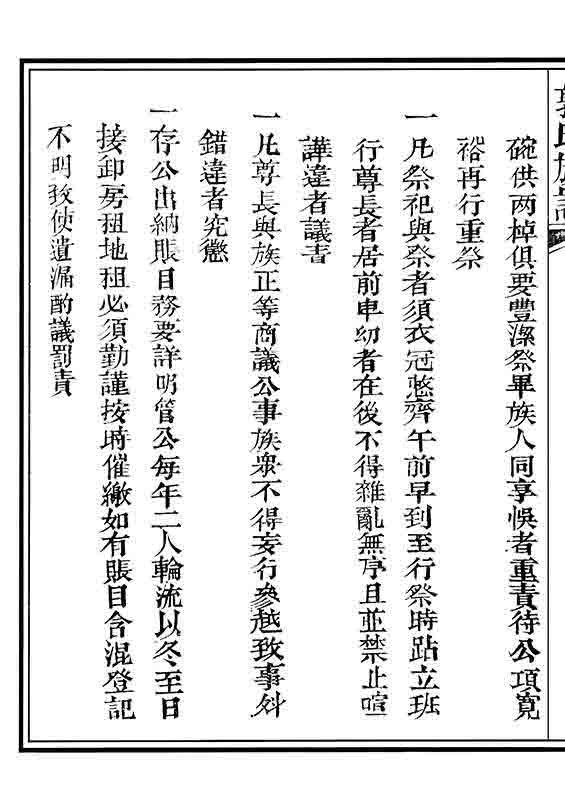 碗供两棹俱要豐潔祭畢族人同享悞者重責待公項寬
裕再行重祭
一凡祭祀與祭者須衣冠整齊午前早到至行祭時跕立班
行尊長者居前卑幼者在後不得雜亂無序且並禁止喧
譁違者議責
一凡尊長與族正等商議公事族衆不得妄行參越致事舛
錯違者究懲
一存公出納賬目務要詳明管公每年二人輪流以冬至日
接卸房租地租必須勤謹按時催繳如有賬目含混登記
不明致使遺漏酌議罰責